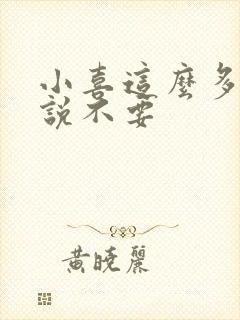 小喜這麼多
說不要
黃曉麗